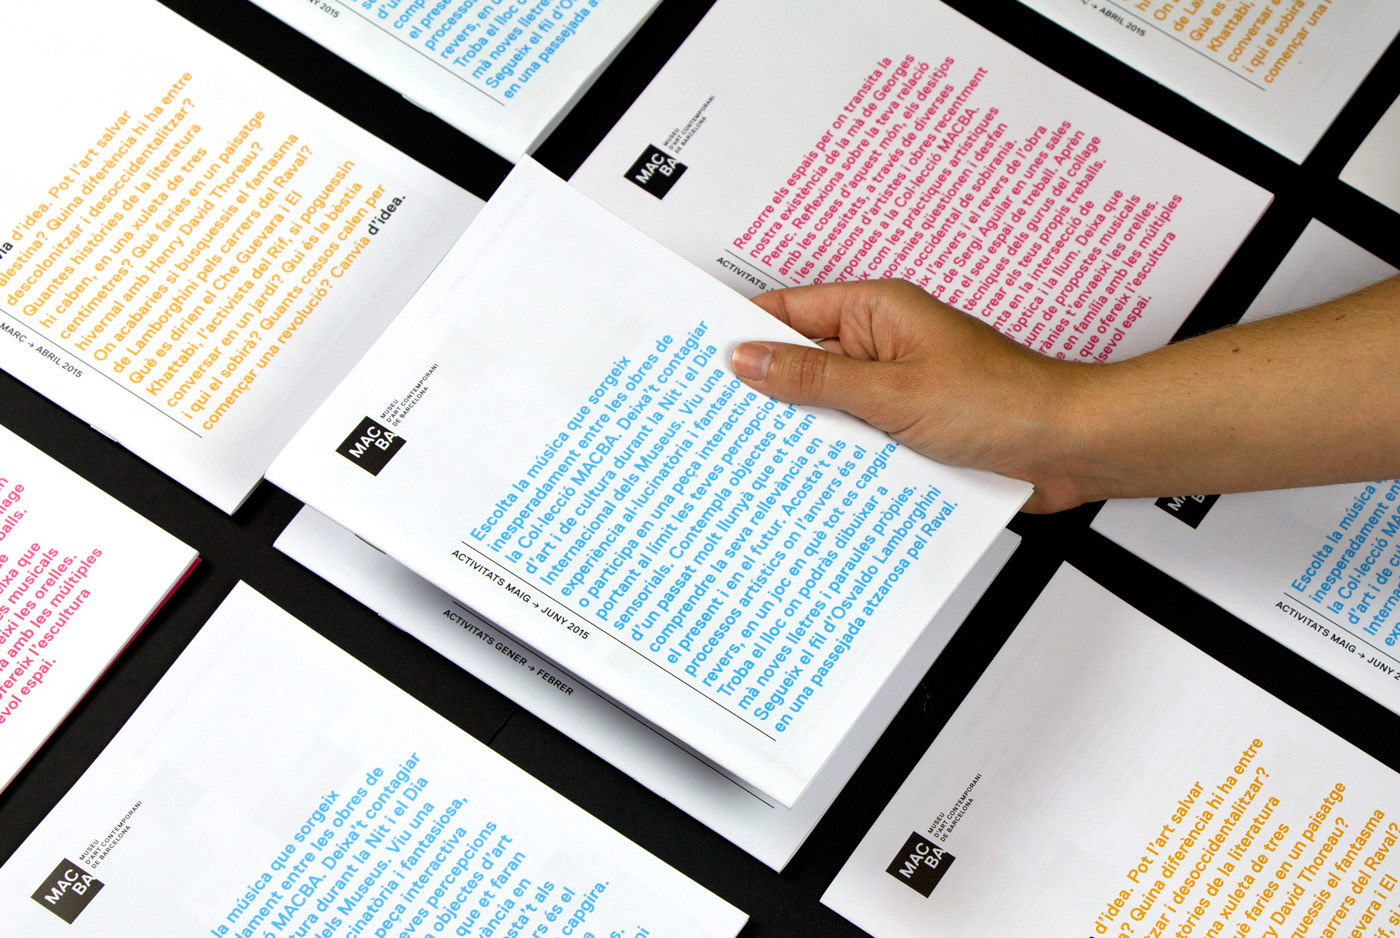 MARÇ → ABRIL 2015
d'idea. Pot l'art salvar
Palestina? Quina diferència hi ha entre
descolonitzar i desoccidentalitzar?
Quantes històries de la literatura
hi caben, en una xuleta de tres
centímetres? Què faries en un paisatge
hivernal amb Henry David Thoreau?
On acabaries si busquessis el fantasma
de Lamborghini pels carrers del Raval?
Què es dirien el Che Guevara i El
Khattabi, l'activista del Rif, si poguessin
conversar en un jardí? Qui és la bèstia
i qui el sobirà? Quants cossos calen per
començar una revolució? Canvia d'idea.
2015
el present
processos
revers, en u
Troba el lloc o
mà noves lletre
Segueix el fil d'O
en una passejada a
MACBA
MUSEU
D'ART CONTEMPORANI
DE BARCELONA
ACTIVITATS
Recorre els espais per on transita la
nostra existència de la mà de Georges
Perec. Reflexiona sobre la teva relació
amb les coses d'aquest món, els desitjos
i les necessitats, a través de diverses
generacions d'artistes i obres recentment
incorporades a la Col·lecció MACBA.
pràctiques artístiques
qüestionen i desfan
occidental de sobirania.
l'anvers i el revers de l'obra
de Sergi Aguilar en unes sales
en el seu espai de treball. Aprèn
tècniques dels gurus del collage
crear els teus propis treballs.
en la intersecció de
l'òptica i la llum. Deixa que
propostes musicals
t'envaeixi les orelles.
en família amb les múltiples
que ofereix l'escultura
espai.
→ ABRIL 2015
Què es
Khattabi,
conversar e
i qui el sobirà
començar una
MAC
BA
MUSEU
D'ART CONTEMPORANI
DE BARCELONA
ACTIVITATS MAIG → JUNY 2015
Escolta la música que sorgeix
inesperadament entre les obres de
la Col·lecció MACBA. Deixa't contagiar
d'art i de cultura durant la Nit i el Dia
Internacional dels Museus. Viu una
experiència al·lucinatòria i fantasio
o participa en una peça interactiva
portant al límit les teves percepcio
sensorials. Contempla objectes d'ar
d'un passat molt llunyà que et faran
comprendre la seva rellevància en
el present i en el futur. Acosta't als
processos artístics on l'anvers és el
revers, en un joc en què tot es capgira.
Troba el lloc on podràs dibuixar a
mà noves lletres i paraules pròpies.
Segueix el fil d'Osvaldo Lamborghini
en una passejada atzarosa pel Raval
ACTIVITATS GENER → FEBRER
lage
balls.
eixa que
s musicals
eixi les orelles.
a amb les múltiples
ofereix l'escultura
evol espai.
MAC
BA
MUSEU
D'ART CONTEMPORANI
DE BARCELONA
la música que sorgeix
dament entre les obres de
ó MACBA. Deixa't contagiar
tura durant la Nit i el Dia
dels Museus. Viu una
cinatòria i fantasiosa,
peça interactiva
eves percepcions
objectes d'art
que et faran
vància en
sta't als
és el
capgira.
MAC
ACTIVITATS MAIG → JUNY 2
Escolta la músic
inesperadament
la Col·lecció MA
d'art i de c
Interna
MAC
BA
MUSEU
D'ART CONTEMPORANI
DE BARCELONA
d'idea. Pot l'art salvar
a? Quina diferència hi ha entre
tzar i desoccidentalitzar?
tòries de la literatura
una xuleta de tres
faries en un paisatge
David Thoreau?
quessis el fantasma
carrers del Raval?
evara i El